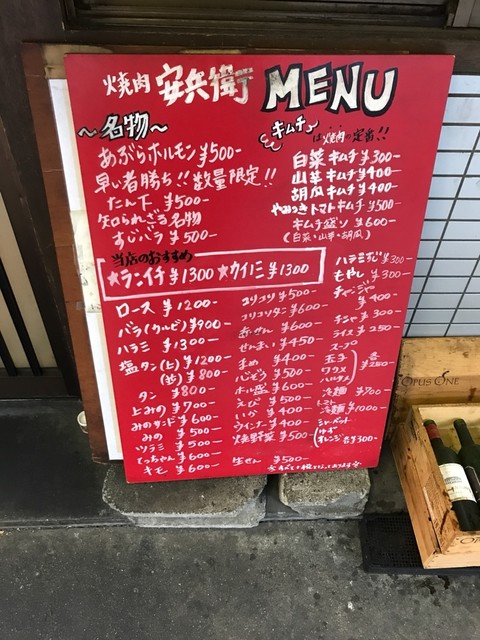 焼肉 安兵衛 MENU
〜名物〜
あぶらホルモン ¥500-
早い者勝ち!!数量限定!!
たん下 ¥500-
知られざる名物
すじバラ ¥500-
キムチ は焼肉の定番!!
白菜キムチ ¥300-
山芋キムチ ¥400-
胡瓜キムチ ¥400-
やみつきトマトキムチ ¥500-
キムチ盛り ¥600-
(白菜・山芋・胡瓜)
当店のおすすめ
★ランイチ ¥1300 ★カイノミ ¥1300
ロース ¥1200-
バラ(カルビ) ¥900-
ハラミ ¥1300-
塩タン(上) ¥1200-
(並) ¥800-
タン ¥800-
上みの ¥700-
みのサンド ¥600-
みの ¥500-
ツラミ ¥500-
てっちゃん ¥600-
キモ ¥600-
コリコリ ¥500-
コリコリタン ¥600-
赤せん ¥600-
ぜんまい ¥450-
まめ ¥400-
心ぞう ¥500-
ホホ盛 ¥600-
えび ¥500-
いか ¥400-
ウインナー ¥400-
焼野菜 ¥500-
生せん ¥500-
ハラミユビ ¥300-
もやし ¥300-
チャンジャ ¥400-
チシャ ¥300-
ライス ¥250-
スープ
玉子
ワカメ
ハルサメ
各¥250-
冷麺 ¥700-
トマト冷麺 ¥1000-
シャーベット
ゆず
オレンジ 各¥300-
OPUS ONE